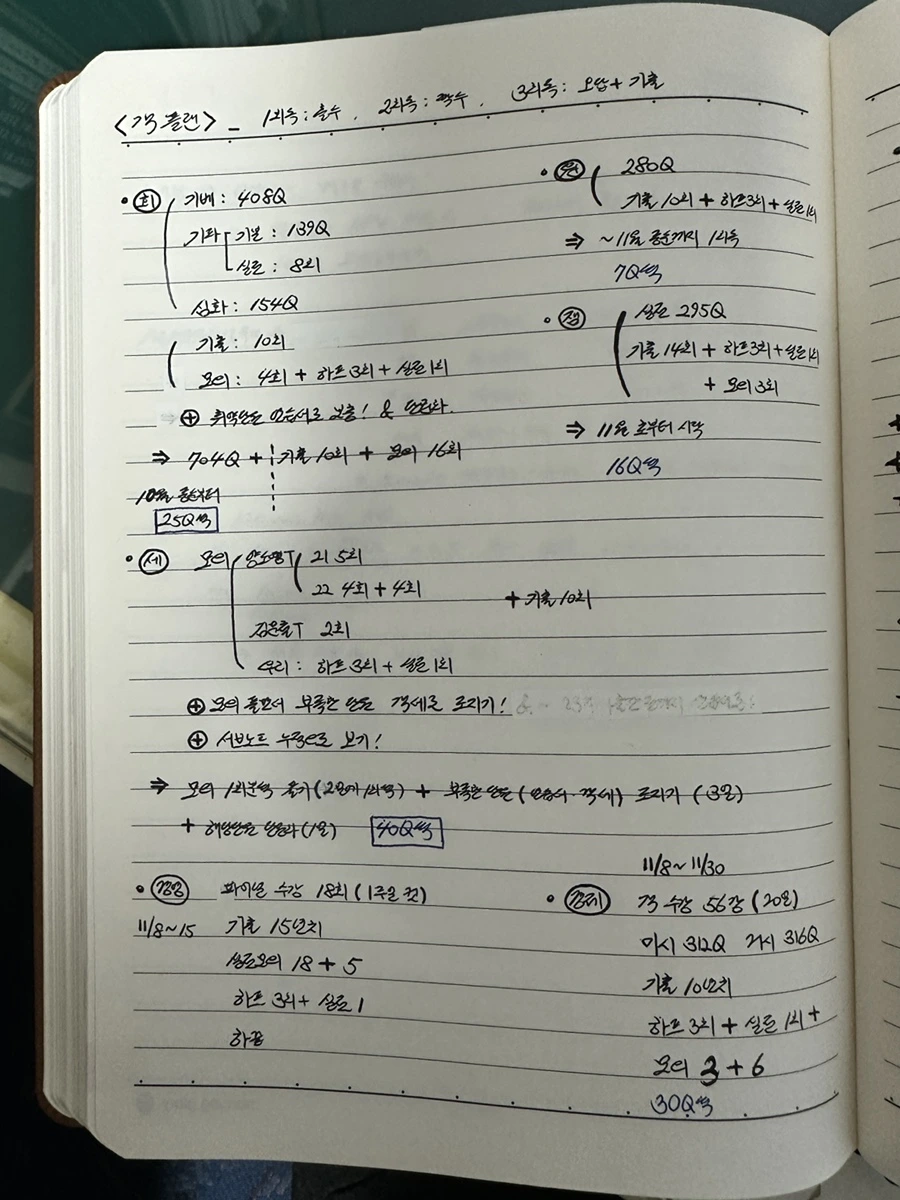 <객 플랜> - 1회독: 홀수, 2회독: 짝수, 3회독: 오답 + 기출
• 회 기베: 408Q
기타 기본: 139Q
실로: 8회
심화: 154Q
기출: 10회
모의: 4회 + 하프 3회 + 실로 1회
⊕ 취약단원 연습서로 보충! & 단권화.
⇒ 704Q + 기출 10회 + 모의 16회
10월 중순부터
25Q씩
• 원 280Q
기출 10회 + 하프 3회 + 실로 1회
⇒ ~11월 중순까지 1회독
7Q씩
• 정 실로 295Q
기출 14회 + 하프 3회 + 실로 1회
+ 모의 3회
⇒ 11월 초부터 시작
16Q씩
• 세 모의 양소영T 21 5회
22 4회 + 4회
+ 기출 10회
김문철T 2회
우리: 하프 3회 + 실로 1회
⊕ 모의 풀면서 부족한 단원 객세로 조지기!
⊕ 서브노트 누적으로 보기!
⇒ 모의 1회분씩 풀기 (2일에 1회독) + 부족한 단원 (연습서·객세) 조지기 (3일)
+ 해당단원 단권화 (1일) 40Q씩
• 경영 파이널 수강 18회 (1주일 컷)
11/8~15 기출 15년치
실로모의 18 + 5
하프 3회 + 실로 1
하끝
11/8~11/30
• 경제 객 수강 56강 (20일)
미시 312Q 거시 316Q
기출 10년치
하프 3회 + 실로 1회 +
모의 3 + 6
30Q씩